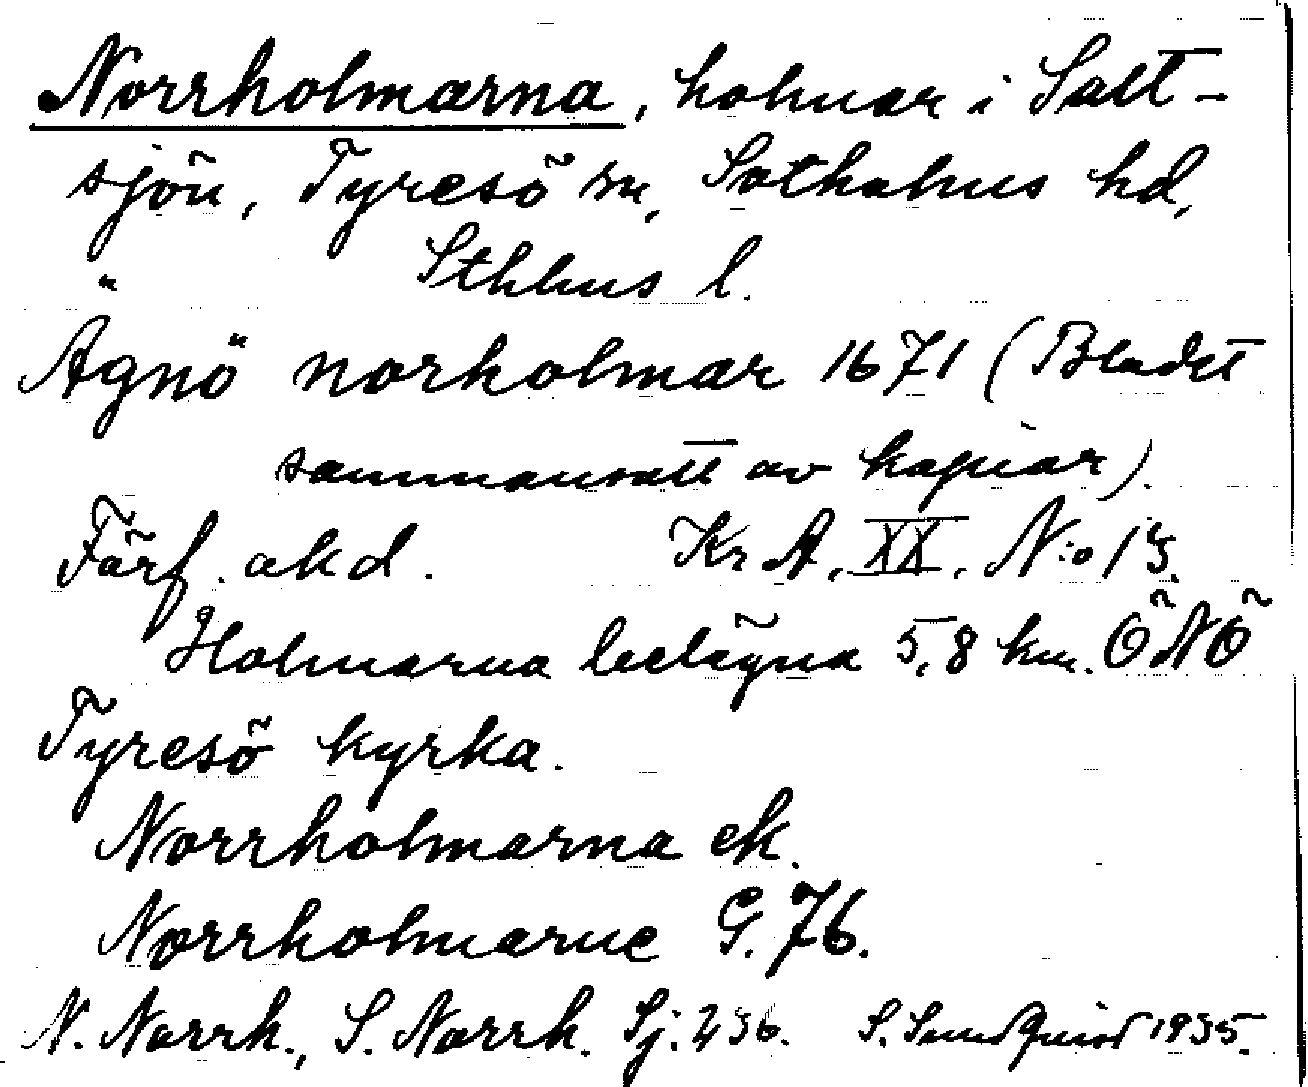 Norrholmarna, holmar i Salt-
sjön, Tyresö sn, Sotholms hd,
Sthlms l.
Ägnö norholmar 1671 (Bladet
sammansatt av kapiar).
Förf. okd. Kr A, XX, N:o 13.
Holmarna belägna 5,8 km. ÖNÖ
Tyresö kyrka.
Norrholmarna ek.
Norrholmarne G. 76.
N. Norrh., S. Norrh. Sj. 236. S. Sundquist 1935.